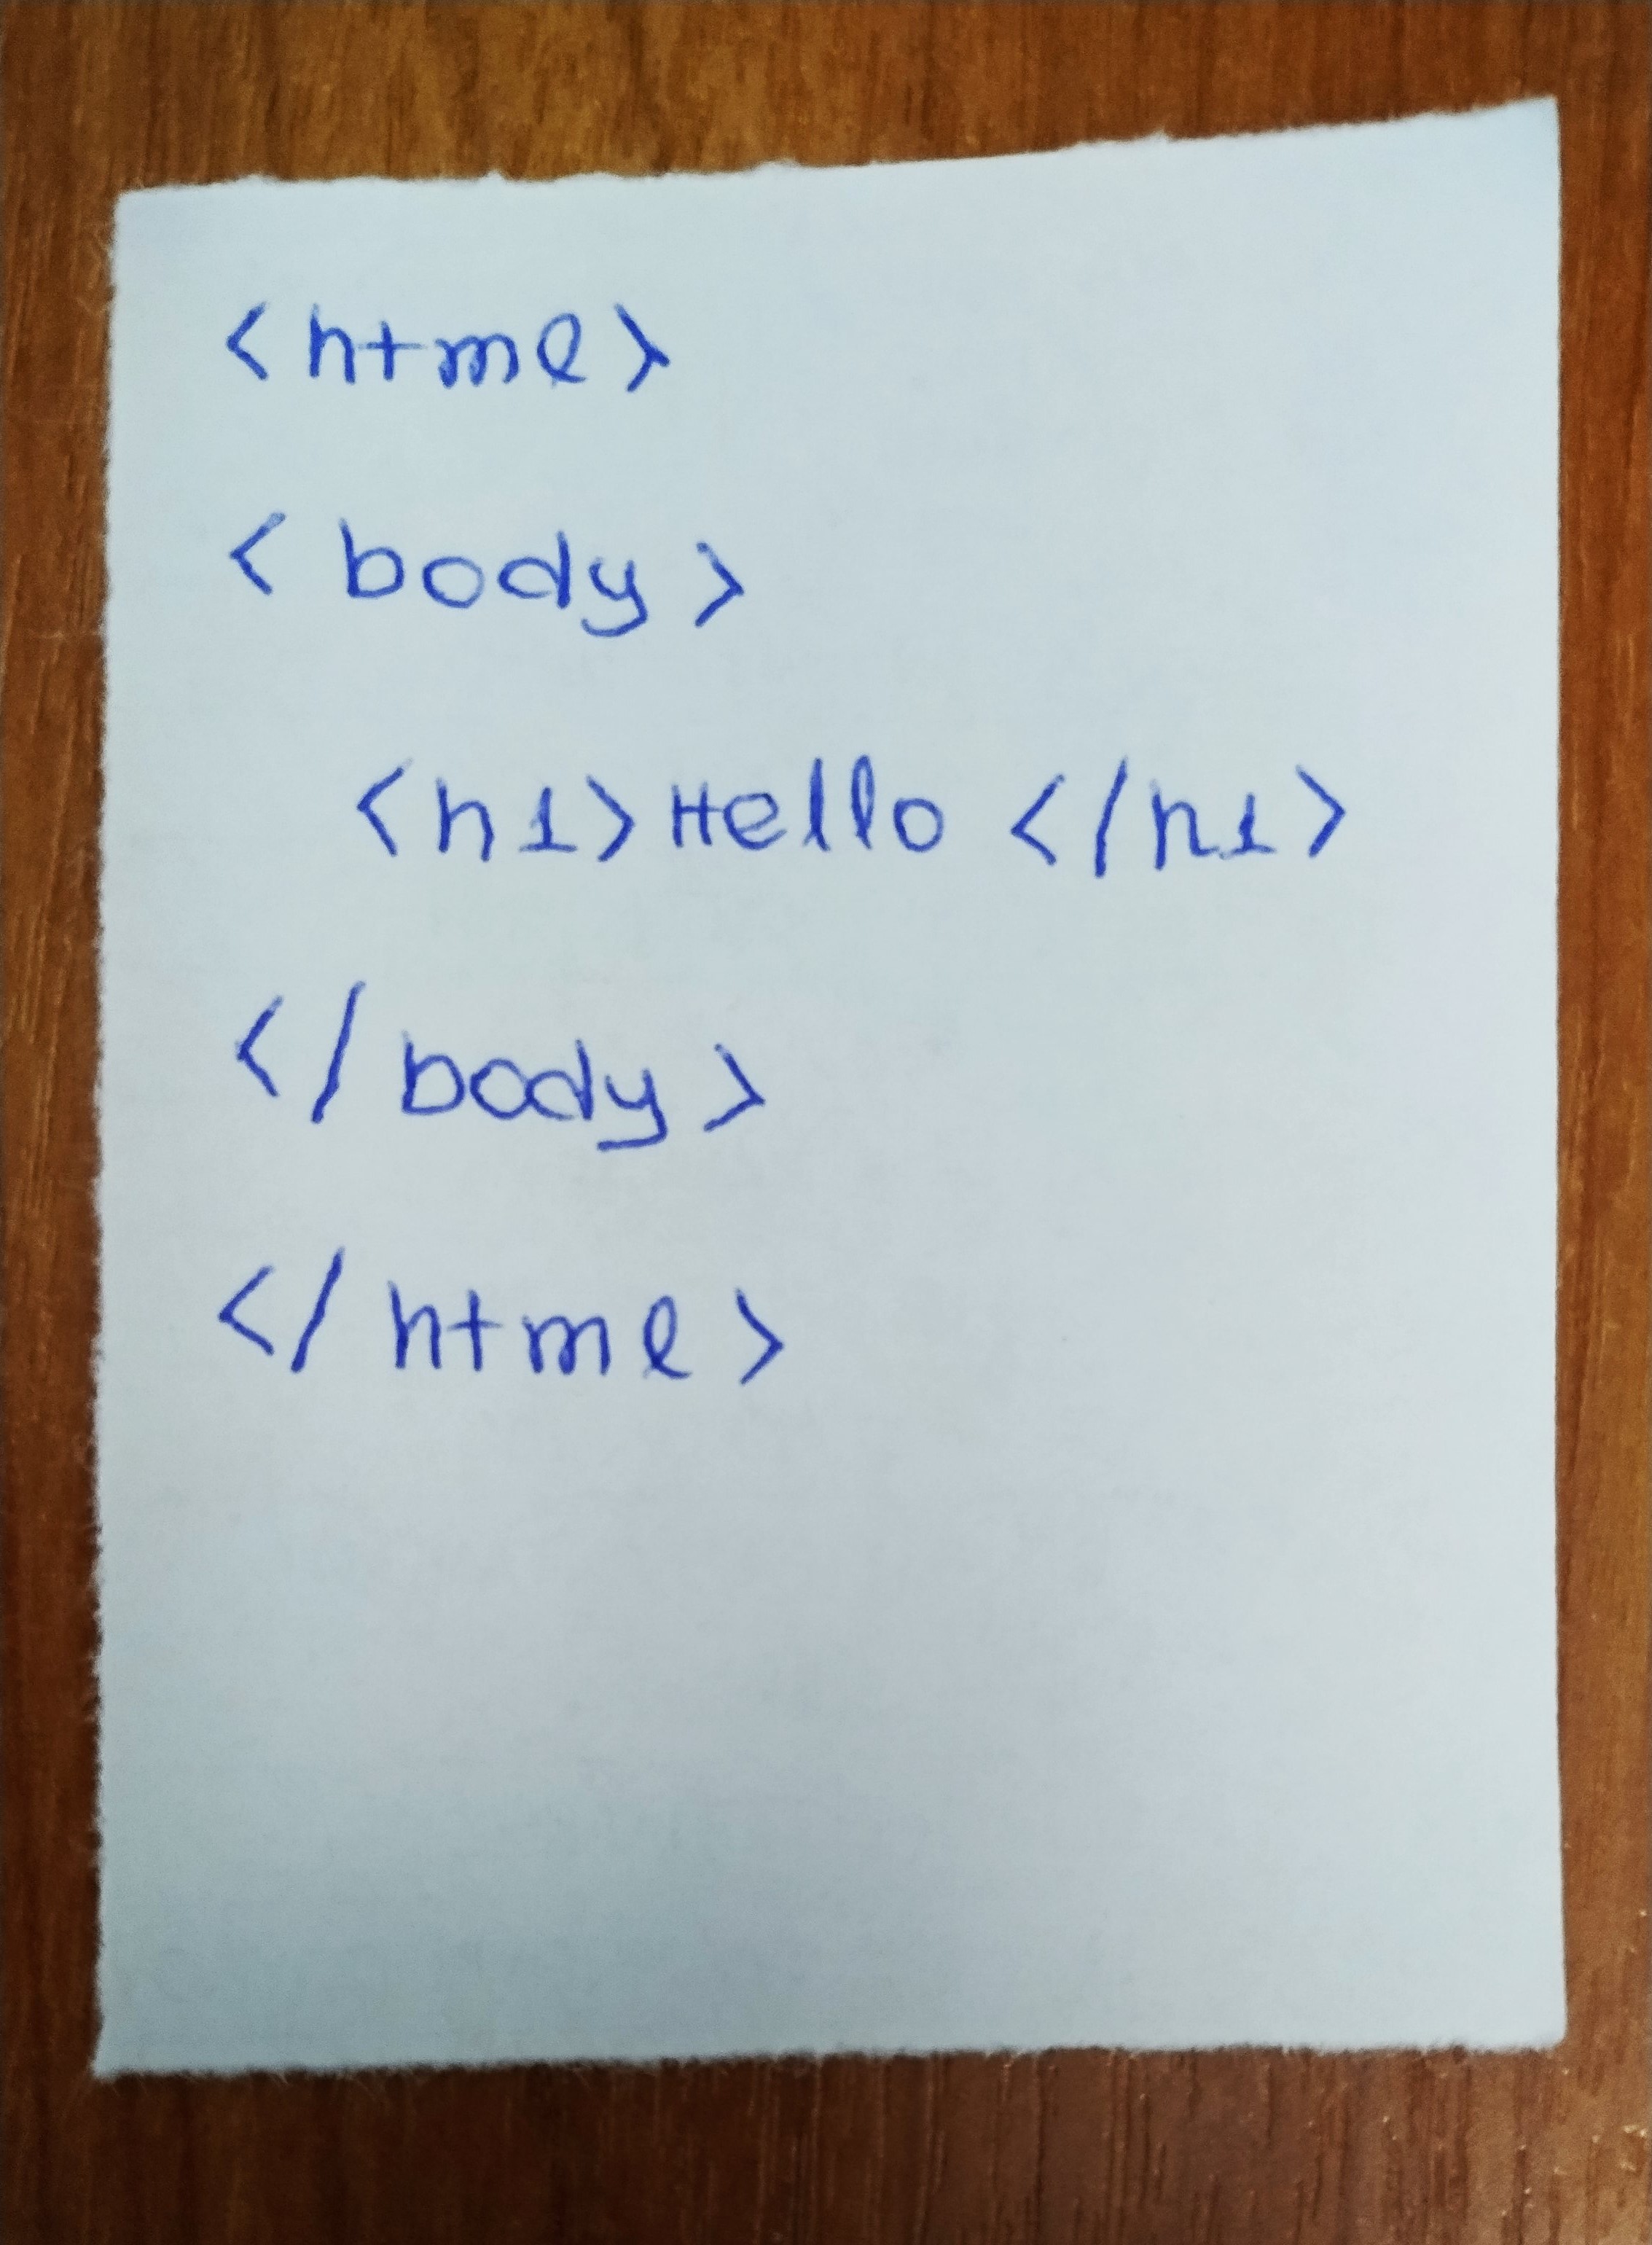 <html>
<body>
<h1>Hello </h1>
</body>
</html>